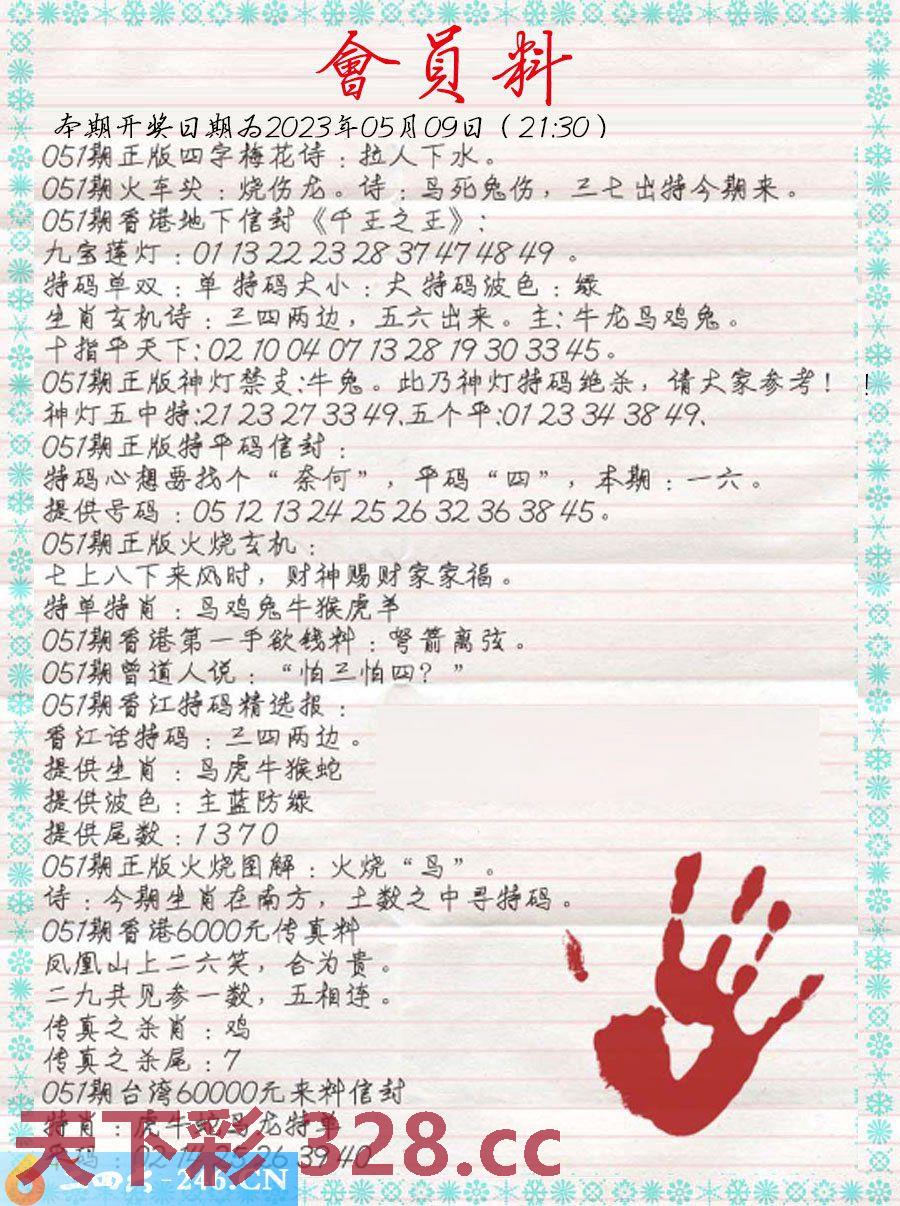 會員料
本期开奖日期为2023年05月09日（21:30）
051期正版四字梅花诗：拉人下水。
051期火车头：烧伤龙。诗：鸟死兔伤，三七出特今期来。
051期香港地下信封《千王之王》：
九宝莲灯：01 13 22 23 28 37 47 48 49 。
特码单双：单 特码大小：大 特码波色：绿
生肖玄机诗：三四两边，五六出来。主：牛龙鸟鸡兔。
十指平天下：02 10 04 07 13 28 19 30 33 45。
051期正版神灯禁支：牛兔。此乃神灯特码绝杀，请大家参考！！
神灯五中特：21 23 27 33 49.五个平：01 23 34 38 49.
051期正版特平码信封：
特码心想要找个“奈何”，平码“四”，本期：一六。
提供号码：05 12 13 24 25 26 32 36 38 45。
051期正版火烧玄机：
七上八下来风时，财神赐财家家福。
特单特肖：鸟鸡兔牛猴虎羊
051期香港第一手欲钱料：弩箭离弦。
051期曾道人说：“怕三怕四？”
051期香江特码精选报：
香江话特码：三四两边。
提供生肖：鸟虎牛猴蛇
提供波色：主蓝防绿
提供尾数：1 3 7 0
051期正版火烧图解：火烧“鸟”。
诗：今期生肖在南方，土数之中寻特码。
051期香港6000元传真料
凤凰山上二六笑，合为贵。
二九共见参一数，五相连。
传真之杀肖：鸡
传真之杀尾：7
051期台湾60000元来料信封
特肖：虎牛蛇鸟龙特单
平码：02 14 25 26 39 40
天下彩 328.cc
二四六-246.CN